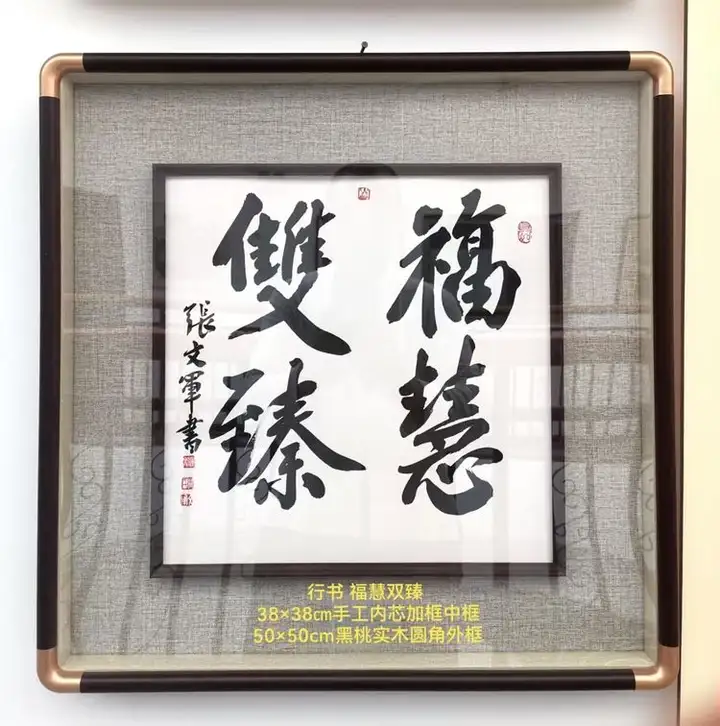 福慧
雙臻
張文軍書
行书 福慧双臻
38×38㎝手工内芯加框中框
50×50cm黑桃实木圆角外框